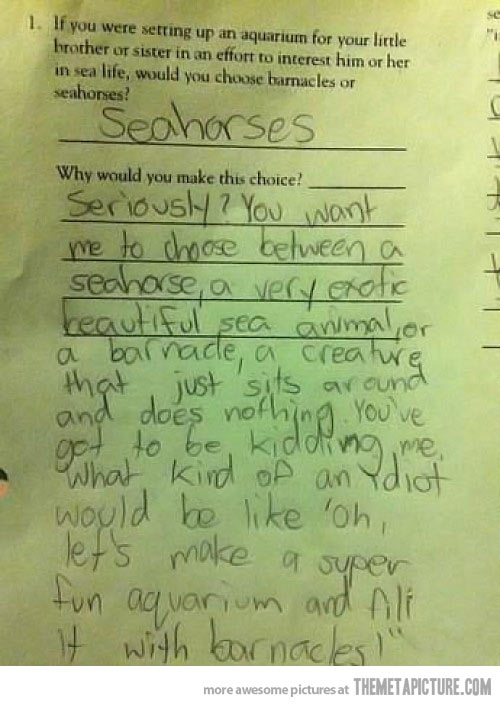 1. If you were setting up an aquarium for your little
brother or sister in an effort to interest him or her
in sea life, would you choose barnacles or
seahorses?
Seahorses
Why would you make this choice?
Seriously? You want
me to choose between a
seahorse, a very exotic
beautiful sea animal, or
a barnacle, a creature
that just sits around
and does nothing. You've
got to be kidding me.
What kind of an ydiot
would be like 'oh,
let's make a super
fun aquarium and fill
it with barnacles!"
more awesome pictures at THEMETAPICTURE.COM